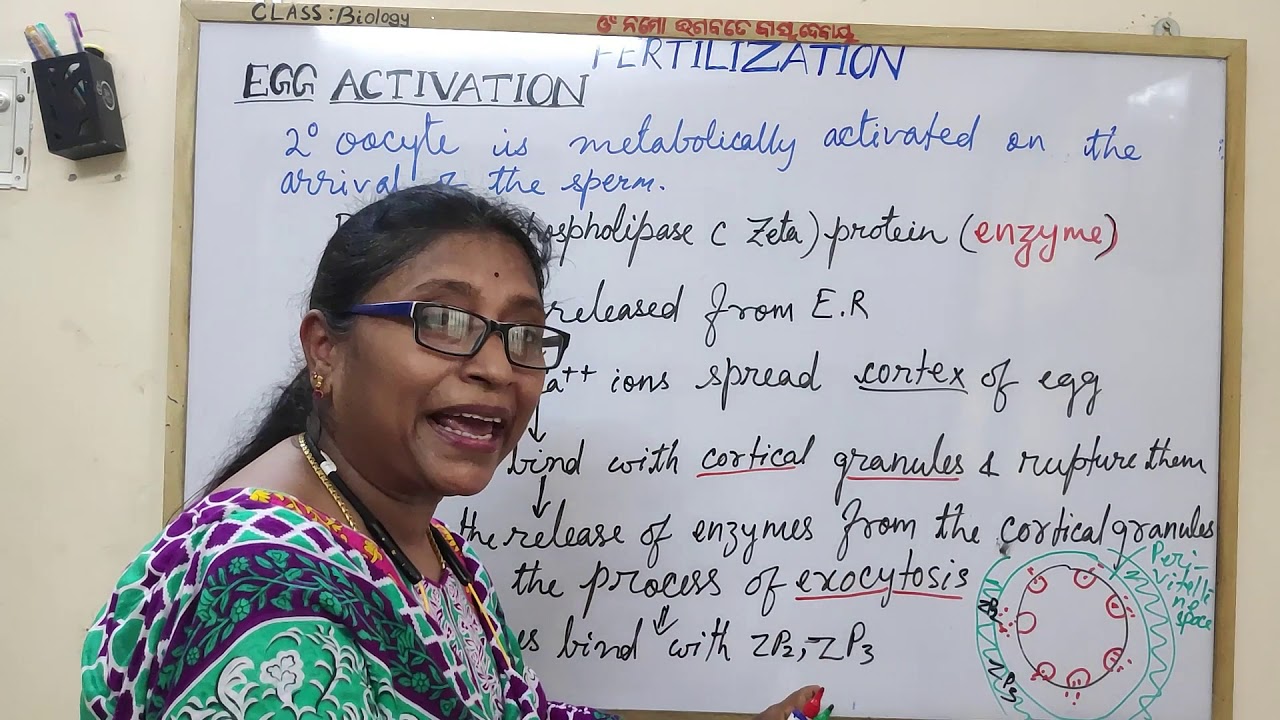 CLASS: Biology
ଓଁ ନମୋ ଭଗବତେ ବାସୁଦେବାୟ
FERTILIZATION
EGG ACTIVATION
2° oocyte is metabolically activated on the
arrival the sperm.
phospholipase C Zeta) protein (enzyme)
released from E.R
Ca++ ions spread cortex of egg
bind with cortical granules & rupture them
the release of enzymes from the cortical granules
the process of exocytosis
bind with ZP2, ZP3
Peri-
vitelli
n space
ZP3